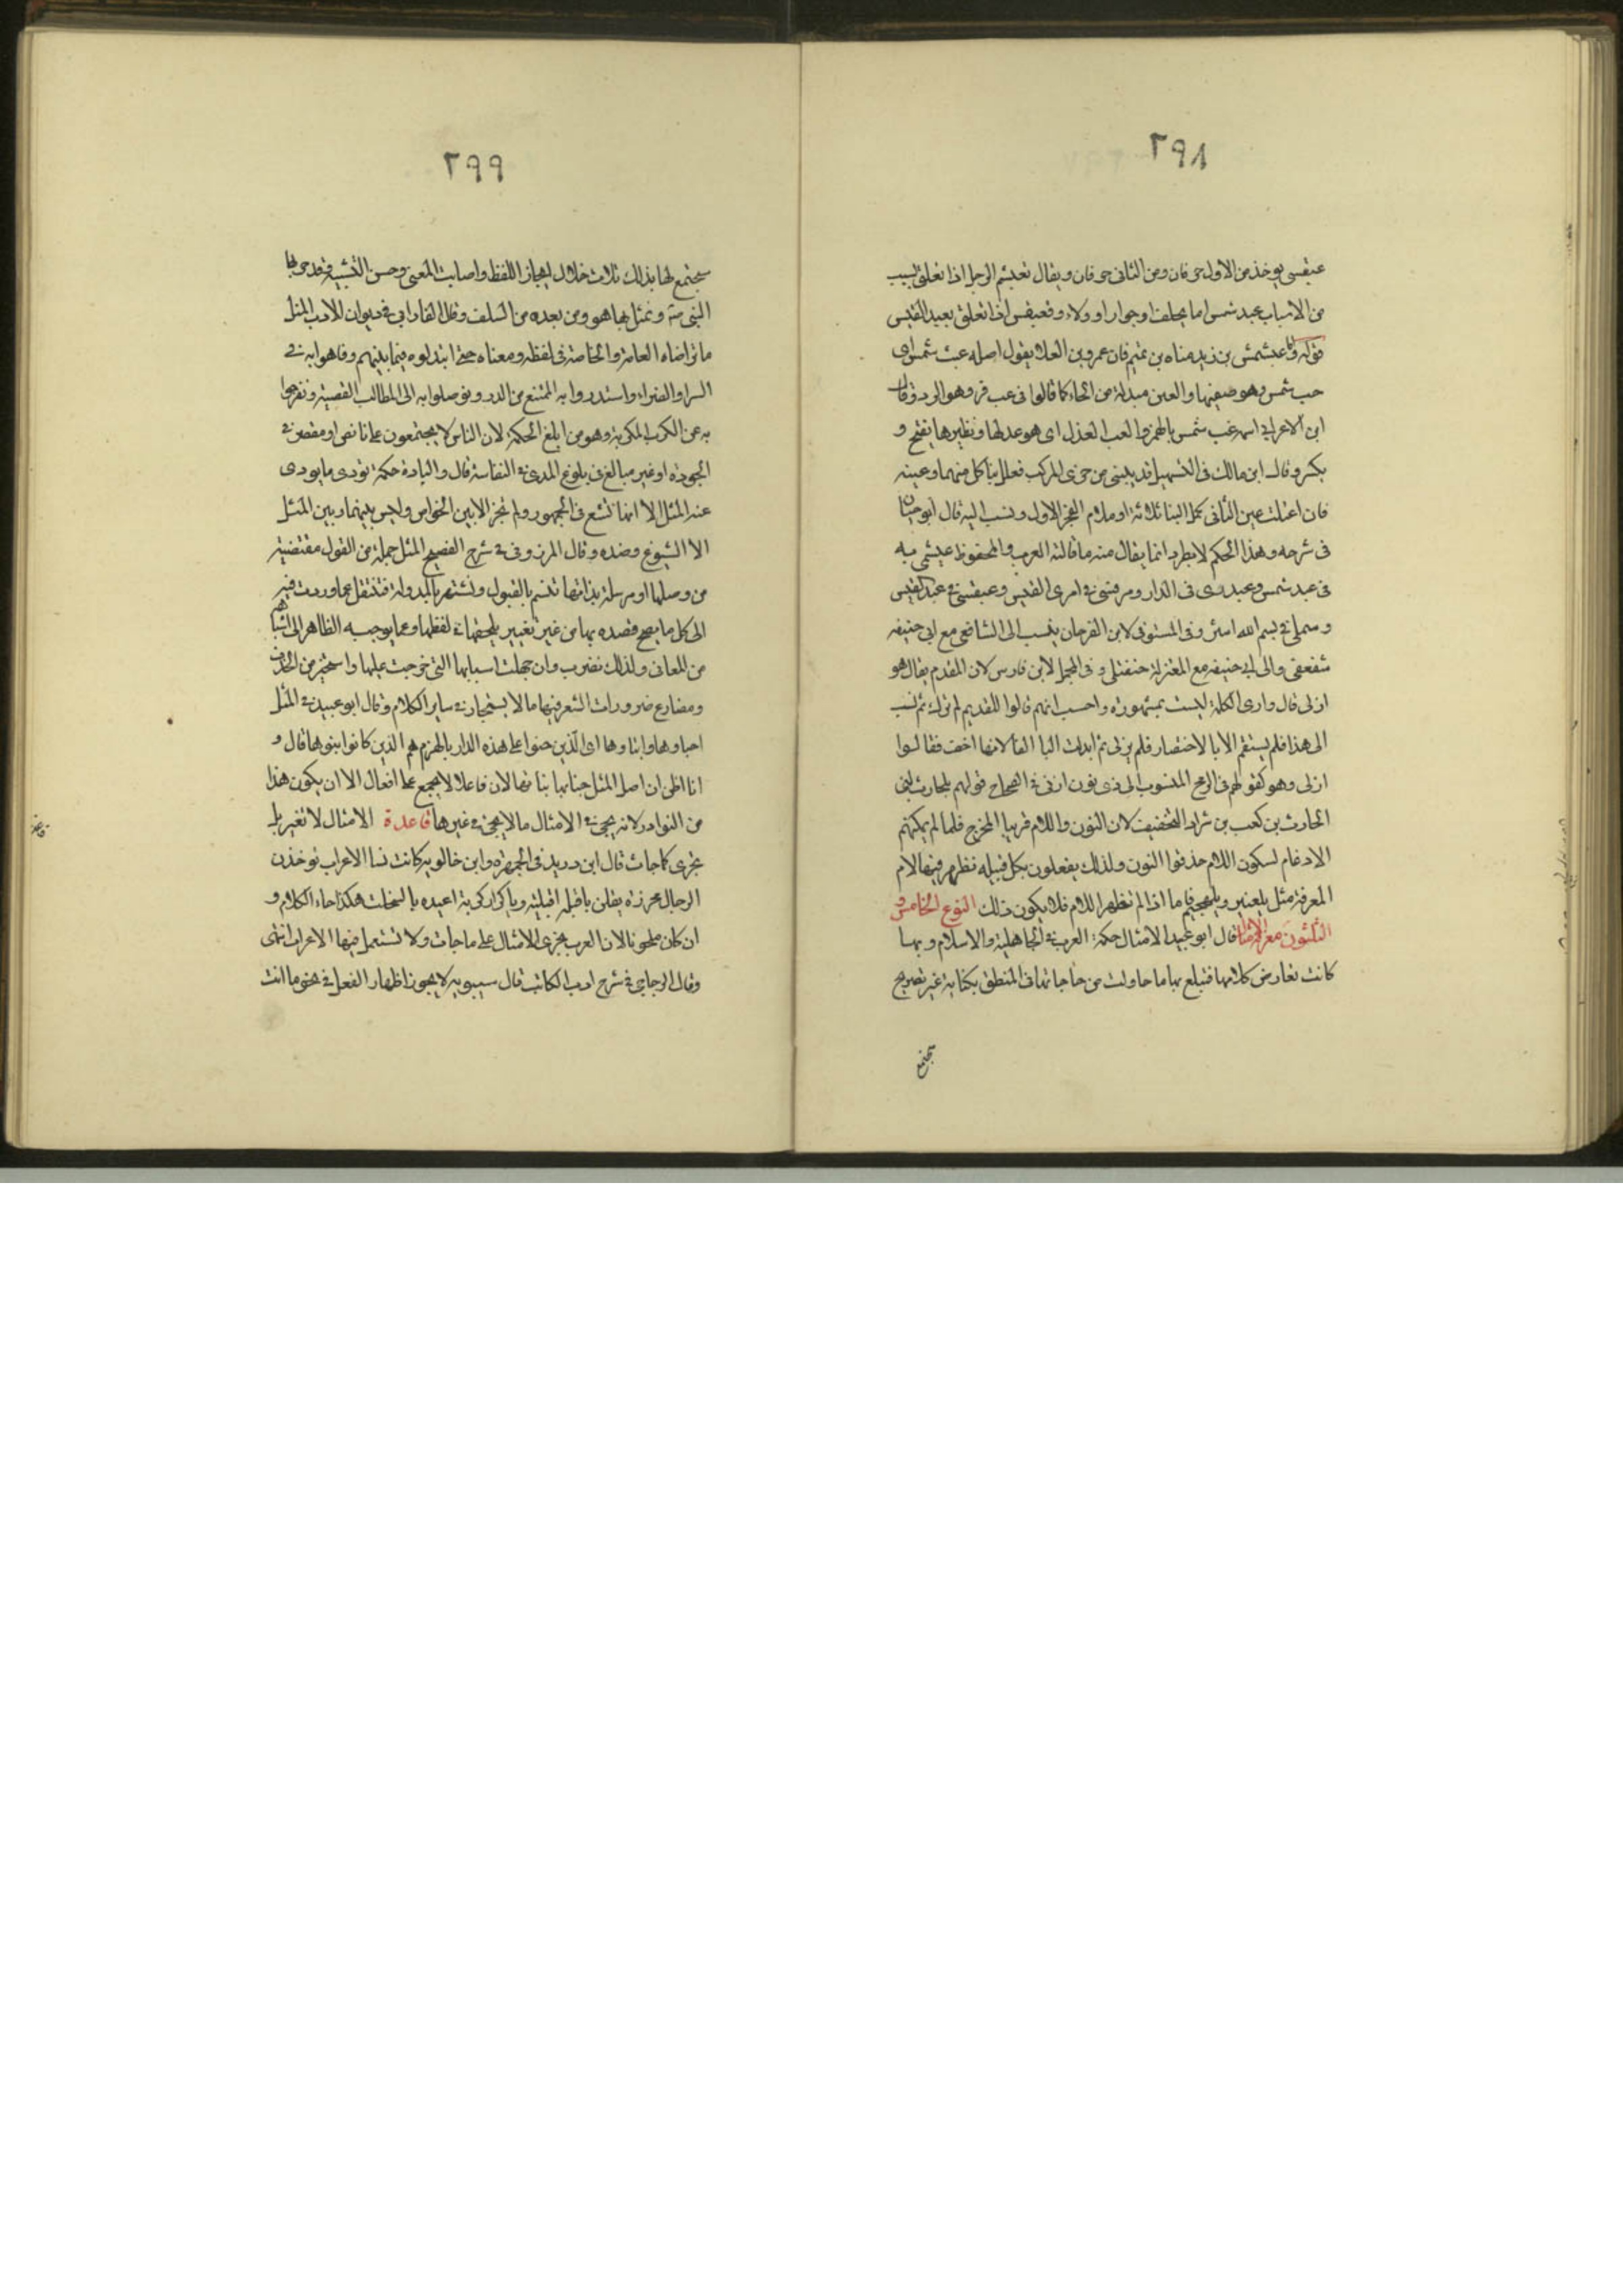 ٢٩٨
عبقسى يوخذ من الاول حرفان ومن الثانى حرفان ويقال تعبشم الرجل اذا تعلق بسبب
من الاسباب عبد شمس اما بحلف او جوار او ولاء وتعبقس اذا تعلق بعبد القيس
قوله واما عبشمس بن زيد مناه بن تميم فان عمرو بن العلا يقول اصله عب شمس اى
حب شمس وهو ضوئها والعين مبدلة من الحاء كما قالوا فى عب قر وهو البرد وقال
ابن الاعرابى اسمه عب شمس بالهمز والعب العدل اى هو عدلها ونظيرها يفتح و
يكسر وقال ابن مالك فى التسهيل قد يبنى من جزى المركب فعلل بفا كل منهما وعينه
فان اعتلت عين الثانى كمل البنا بلامه او بلام الجز الاول ونسب اليه قال ابو حيان
فى شرحه وهذا الحكم لا يطرد انما يقال منه ما قالته العرب والمحفوظ عبشمى
فى عبد شمس وعبدرى فى الدار ومرقسى فى امرى القيس وعبقسى فى عبد القيس
الى ابى حنيفه مع المعتزلة حنفتلى وفى المجمل لابن فارس
ازلى قال وارى الكلمة ليست بمشهورة واحسب انهم قالوا للقديم لم يزل ثم نسب
الى هذا فلم يستقم الا بالاختصار فلم يزلى ثم ابدلت اليا الفا لانها اخف فقالوا
ازلى وهو كقولهم فى الرمح المنسوب الى ذى يزن ازنى فى الصحاح قولهم بلحارث لبنى
الحارث بن كعب من شواذ التخفيف لان النون واللام قريبا المخرج فلما لم يمكنهم
الادغام لسكون اللام حذفوا النون وكذلك يفعلون بكل قبيله تظهر فيها لام
المعرفة مثل بلعنبر وبلهجيم فاما اذا لم تظهر اللام فلا يكون ذلك النوع الخامس و
الثلثون معرفة الامثال قال ابو عبيد الامثال حكمة العرب فى الجاهلية والاسلام وبها
كانت تعارض كلامها فتبلغ بها ما حاولت من حاجاتها فى المنطق بكناية غير تصريح
٢٩٩
فيجتمع لها بذلك ثلاث خلال ايجاز اللفظ واصابت المعنى وحسن التشبيه
النبى صلعم وتمثل بها هو ومن بعده من السلف وقال الفارابى فى ديوان الادب المثل
ما تراضاه العامة والخاصة فى لفظه ومعناه حتى ابتذلوه فيما بينهم وفاهوا به فى
السرا والضراء واستدروا به الممتنع من الدر وتوصلوا به الى المطالب القصية وتفرجوا
به عن الكرب المكربة وهو من ابلغ الحكمة لان الناس لا يجتمعون على ناقص او مقصر فى
الجودة او غير مبالغ فى بلوغ المدى فى النفاسة قال والنادرة حكمة تودى ما يودى
عنه المثل الا انها لم تشع فى الجمهور ولم تجز الا بين الخواص وليس بينها وبين المثل
الا الشيوع وضده وقال المرزوقى فى شرح الفصيح المثل جملة من القول مقتضبة
من وصلها او مرسلة بذاتها تتسم بالقبول وتشتهر بالتداول فتنتقل عما وردت فيه
الى كل ما يصح قصده بها من غير تغيير يلحقها فى لفظها وعما يوجبه الظاهر الى اشباهه
من المعانى ولذلك تضرب وان جهلت اسبابها التى خرجت عليها واستجيز من الحذف
ومضارع ضرورات الشعر فيها ما لا يستجاز فى ساير الكلام وقال ابو عبيد فى المثل
اجناوها وابناوها اى الذين جنوا على هذه الدار بالهدم هم الذين كانوا بنوها قال و
انا اظن ان اصل المثل جناتها بناتها لان فاعلا لا يجمع على افعال الا ان يكون هذا
من النوادر لانه يجى فى الامثال ما لا يجى فى غيرها قاعدة الامثال لا تغير بل
تجرى كما جات قال ابن دريد فى الجمهرة وابن خالويه كانت نسا الاعراب يوخذن
الرجال بخرزة يقلن يا قبلة اقبليه ويا كرار كريه اعيذه بالينجلب هكذا جاء الكلام و
ان كان ملحونا لان العرب تجرى الامثال على ما جات ولا تستعمل فيها الاعراب انتهى
وقال الزجاجى فى شرح ادب الكاتب قال سيبويه لا يجوز اظهار الفعل فى نحو ما انت